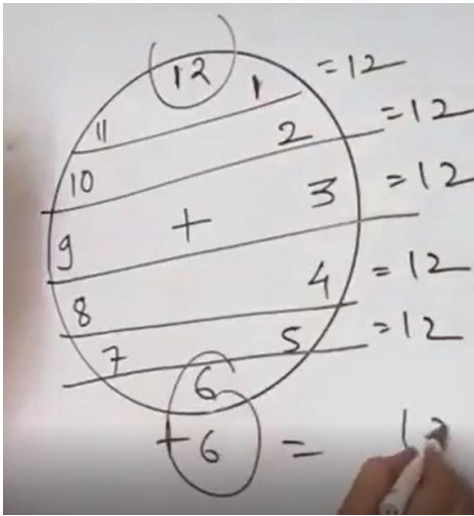 12
11 1 =12
10 2 =12
9 + 3 =12
8 4 =12
7 5 =12
6
+6 = 12